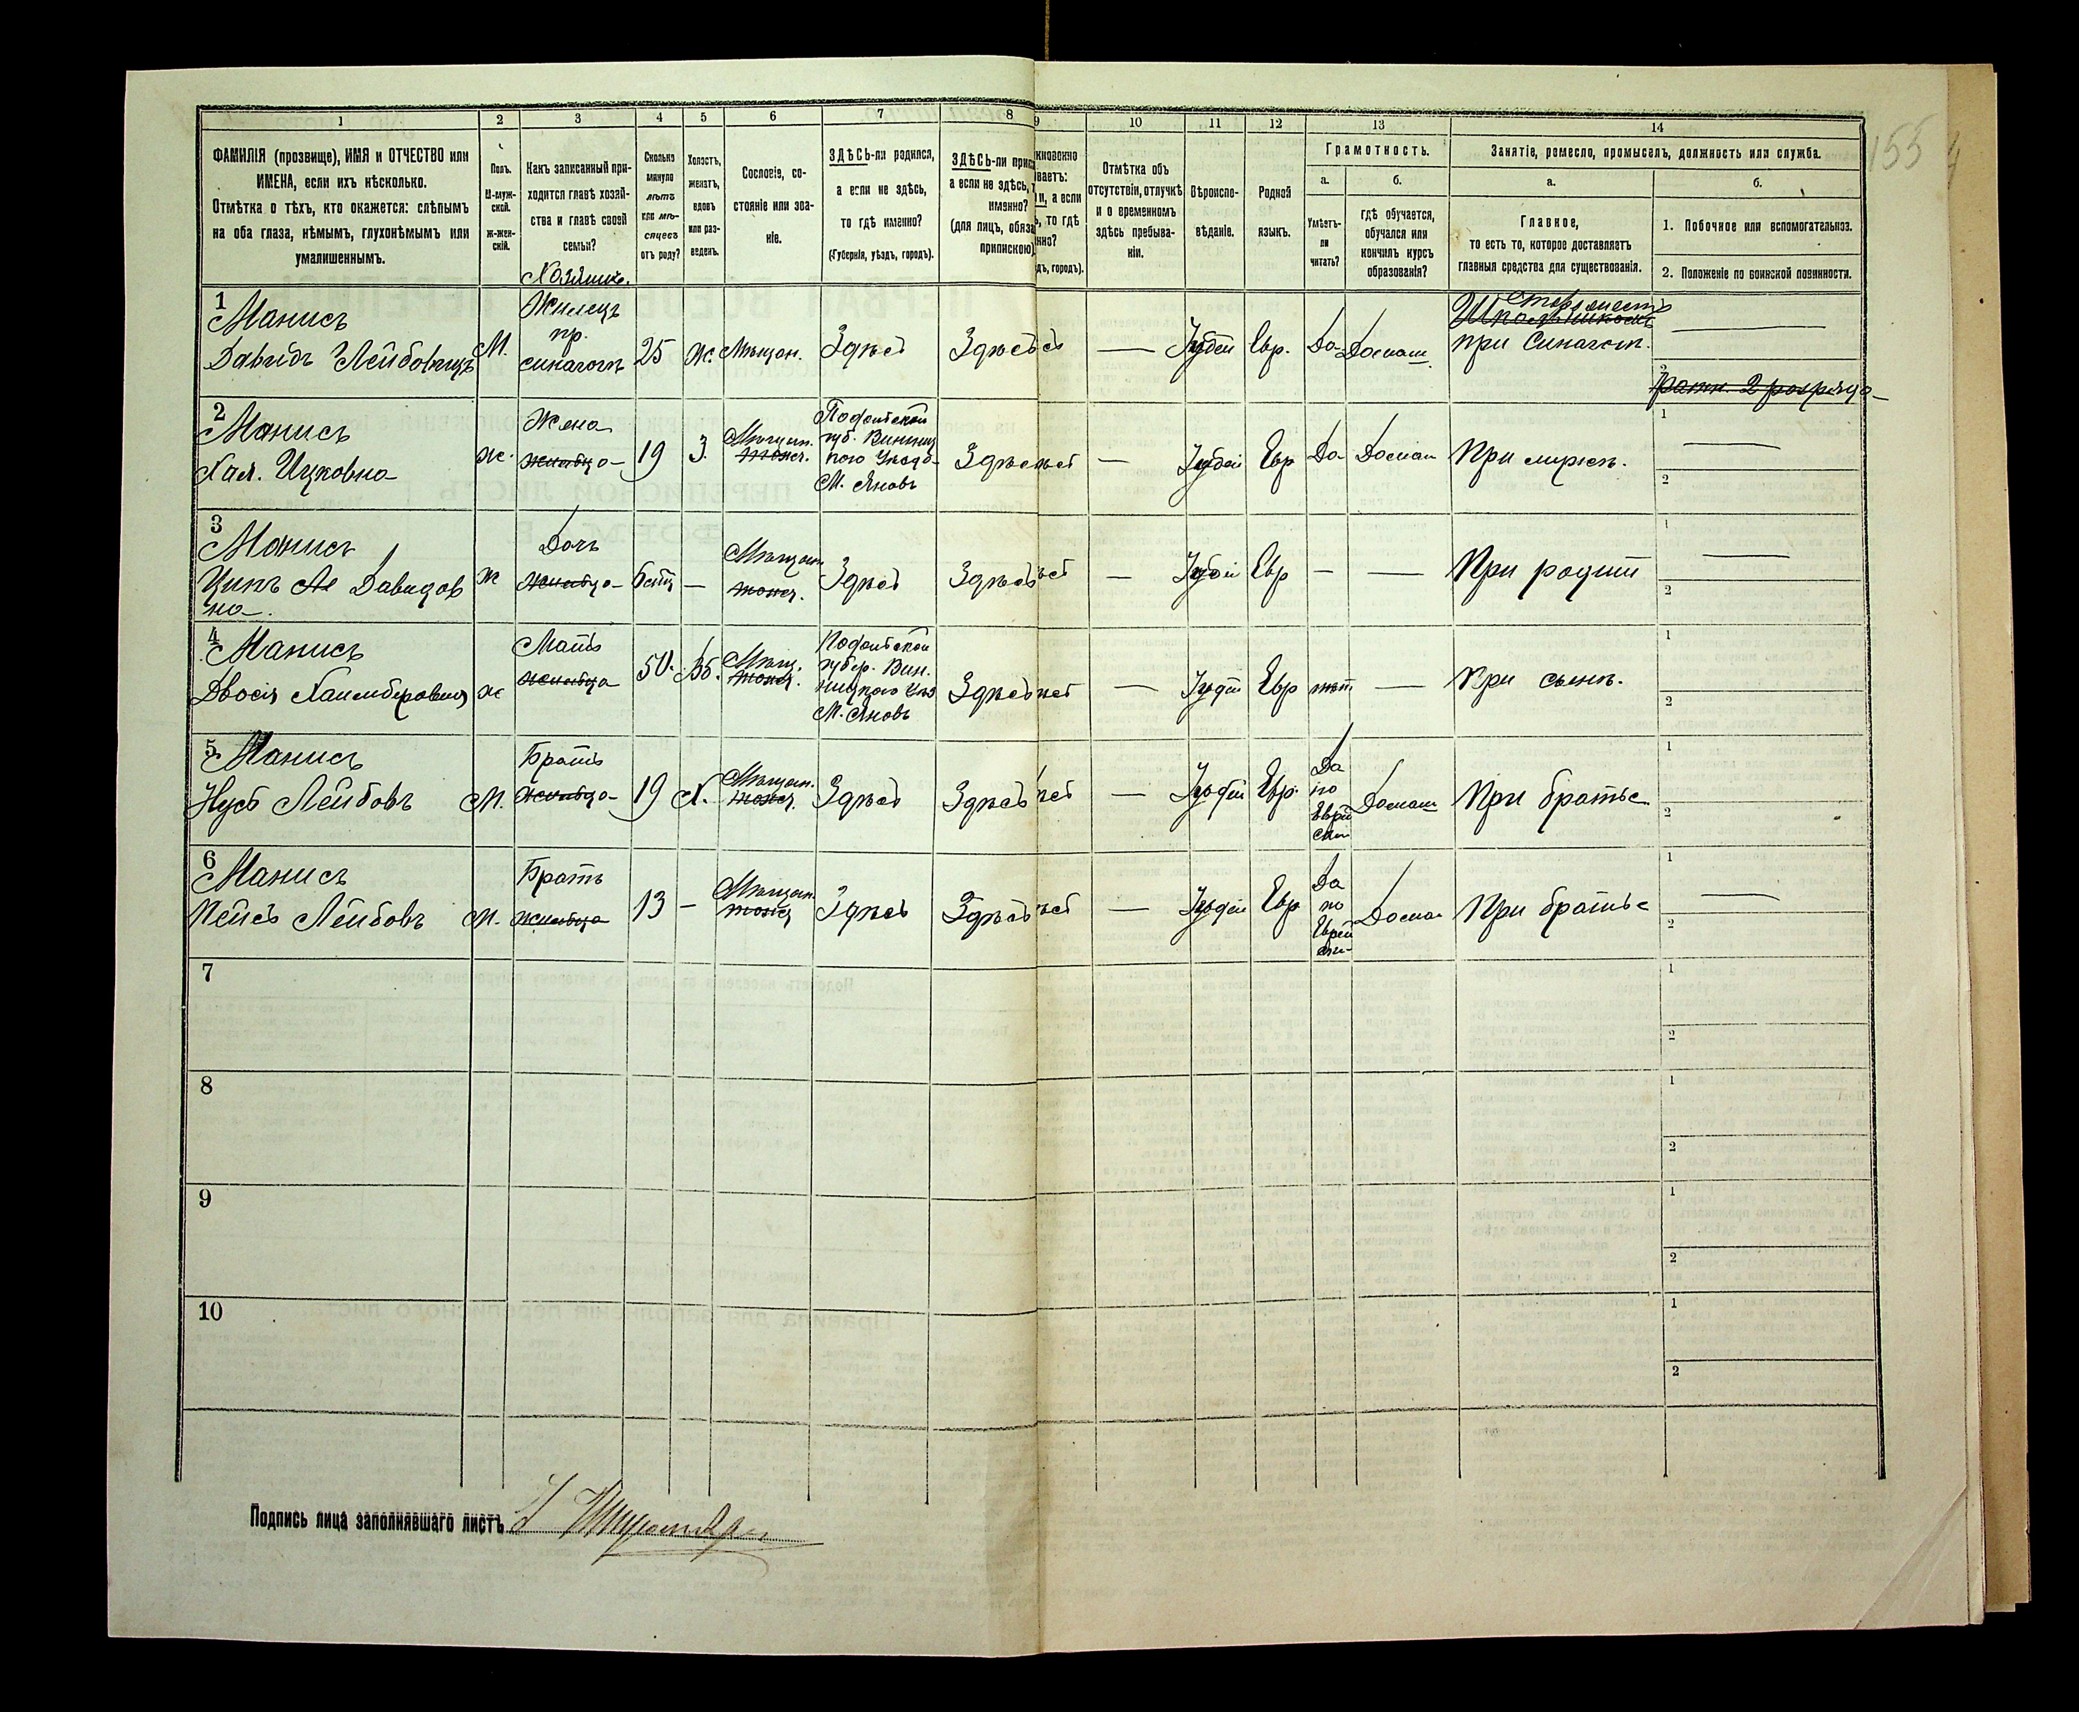 1 2 3 4 5 6 7 8 9 10 11 12 13 14
ФАМИЛІЯ (прозвище), ИМЯ и ОТЧЕСТВО или
ИМЕНА, если ихъ нѣсколько.
Отмѣтка о тѣхъ, кто окажется: слѣпымъ
на оба глаза, нѣмымъ, глухонѣмымъ или
умалишеннымъ.
Полъ.
М-муж-
ской.
ж-жен-
скій.
Какъ записанный при-
ходится главѣ хозяй-
ства и главѣ своей
семьи?
Сколько
минуло
лѣтъ
или мѣ-
сяцевъ
отъ роду?
Холостъ,
женатъ,
вдовъ
или раз-
веденъ.
Сословіе, со-
стояніе или зва-
ніе.
ЗДѢСЬ-ли родился,
а если не здѣсь,
то гдѣ именно?
(Губернія, уѣздъ, городъ).
ЗДѢСЬ-ли прис
а если не здѣсь, т
именно?
(для лицъ, обяза
припискою)
кновенно
ваетъ:
и, а если
ь, то гдѣ
нно?
дъ, городъ).
Отмѣтка объ
отсутствіи, отлучкѣ
и о временномъ
здѣсь пребыва-
ніи.
Вѣроиспо-
вѣданіе.
Родной
языкъ.
Грамотность.
а.
Умѣетъ-
ли
читать?
б.
гдѣ обучается,
обучался или
кончилъ курсъ
образованія?
Занятіе, ремесло, промыселъ, должность или служба.
а.
Главное,
то есть то, которое доставляетъ
главныя средства для существованія.
б.
1. Побочное или вспомогательное.
2. Положеніе по воинской повинности.
155
Хозяинъ.
1
Манисъ
Давидъ Лейбовичъ
М.
Жилецъ
пр.
синагогѣ
25
Ж.
Мѣщан.
Здѣсь
Здѣсь
—
Іудей
Евр.
Да
Домаш.
при Синагог.
2
Манисъ
Хая. Ицковна
ж.
Жена
жильца
19
З.
Мѣщан.
тоже.
Подольской
губ. Винниц
кого Уезда
М. Яновъ
Здѣсь
—
Іудей
Евр
Да
Домаш
При мужѣ.
3
Манисъ
Давидов
на.
ж
Дочь
жильца
—
Мѣщан
тоже.
Здѣсь
Здѣсь
—
Іудей
Евр
—
—
При родит
4
Манисъ
Двося
ж
Мать
жильца
50.
Вд.
Мѣщ.
тоже.
Подольской
губер. Вин.
ницкого Уѣз
М. Яновъ
Здѣсь
—
Іудей
Евр
нѣт
—
При сынѣ.
5
Манисъ
Лейбовъ
М.
Братъ
жильца
19
Х.
Мѣщан.
тоже.
Здѣсь
Здѣсь
—
Іудей
Евр.
Да
по
Еврей
ски
Домаш
При братѣ
6
Манисъ
Пейсъ Лейбовъ
М.
Братъ
жильца
13
—
Мѣщан.
тоже
Здѣсь
Здѣсь
—
Іудей
Евр
Да
по
Еврей
ски
Домаш
При братѣ
7
8
9
10
Подпись лица заполнявшаго листъ